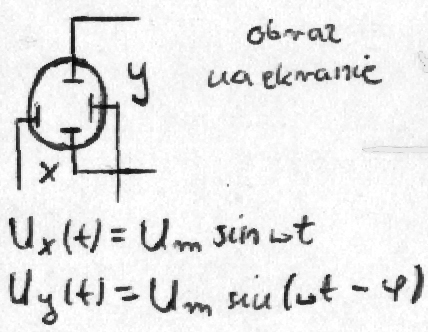 obraz
na ekranie
y
x
Ux(t) = Um sin ωt
Uy(t) = Um sin(ωt - φ)